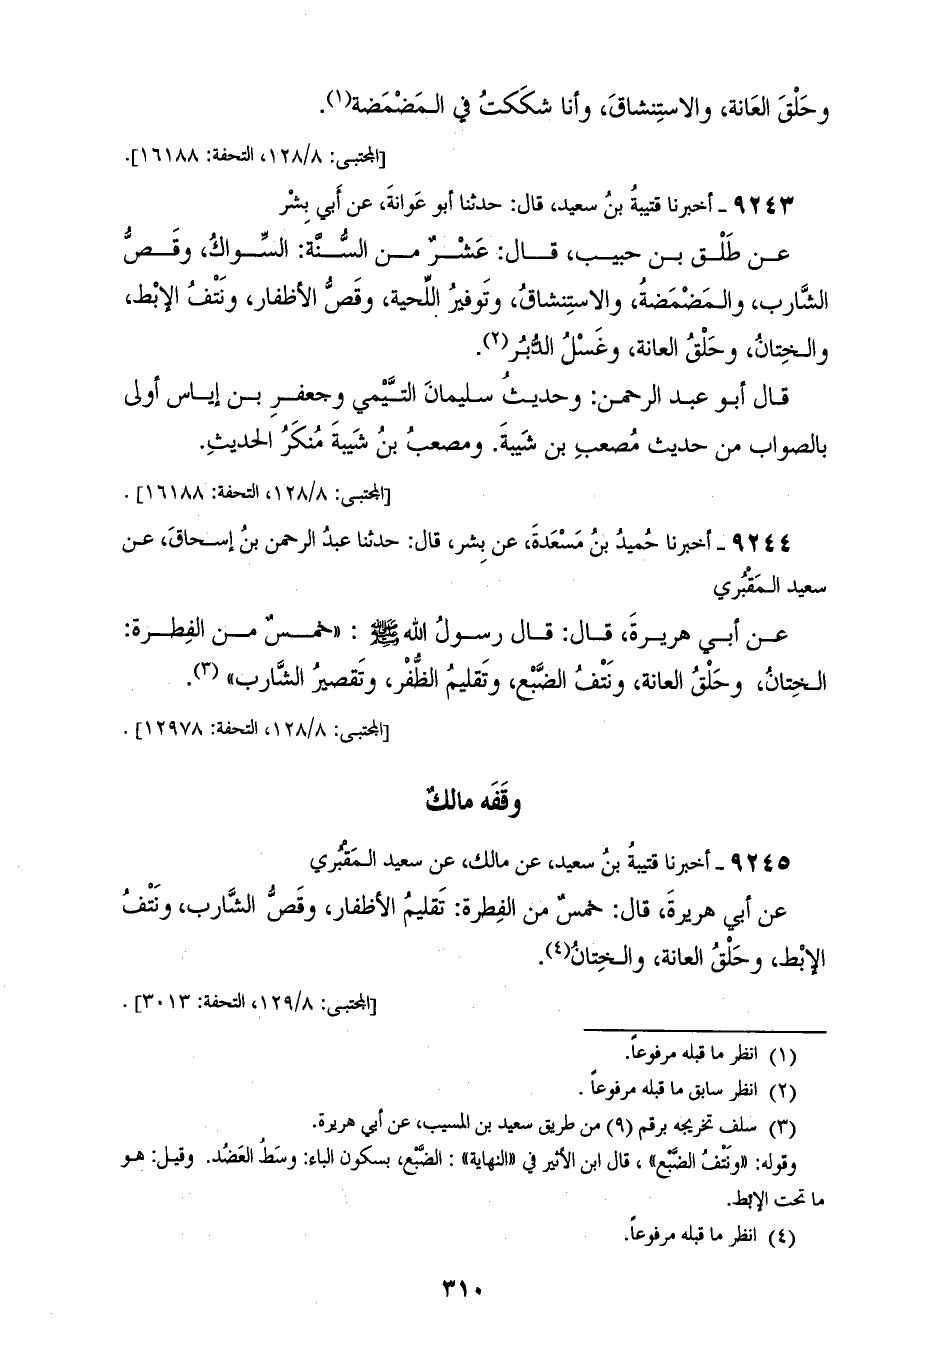 وحَلْقَ العَانة، والاستِنشاقَ، وأنا شكَكتُ في المَضْمَضة(١).
[المجتبى: ١٢٨/٨، التحفة: ١٦١٨٨].
٩٢٤٣ ـ أخبرنا قتيبةُ بنُ سعيد، قال: حدثنا أبو عَوانةَ، عن أبي بِشْر
عن طَلْق بن حبيب، قال: عَشْرٌ من السُّنَّة: السِّواكُ، وقَصُّ
الشَّارب، والمَضْمَضةُ، والاستِنشاقُ، وتَوفيرُ اللِّحية، وقَصُّ الأظفار، ونَتْفُ الإبْط،
والخِتانُ، وحَلْقُ العانة، وغَسْلُ الدُّبُر(٢).
قال أبو عبد الرحمن: وحديثُ سليمانَ التَّيْمي وجعفرِ بن إياس أولى
بالصواب من حديث مُصعبِ بن شَيبةَ. ومصعبُ بنُ شَيبةَ مُنكَرُ الحديثِ.
[المجتبى: ١٢٨/٨، التحفة: ١٦١٨٨].
٩٢٤٤ ـ أخبرنا حُميدُ بنُ مَسْعَدةَ، عن بِشر، قال: حدثنا عبدُ الرحمن بنُ إسحاقَ، عن
سعيد المَقْبُري
عن أبي هريرةَ، قال: قال رسولُ الله ﷺ : «خمسٌ من الفِطرة:
الخِتانُ، وحَلْقُ العانة، ونَتْفُ الضَّبْع، وتَقليمُ الظُّفْر، وتَقصيرُ الشَّارب» (٣).
[المجتبى: ١٢٨/٨، التحفة: ١٢٩٧٨].
وقَفَه مالكٌ
٩٢٤٥ ـ أخبرنا قتيبةُ بنُ سعيد، عن مالك، عن سعيد المَقْبُري
عن أبي هريرةَ، قال: خمسٌ من الفِطرة: تَقليمُ الأظفار، وقَصُّ الشَّارب، ونَتْفُ
الإبْط، وحَلْقُ العانة، والخِتانُ(٤).
[المجتبى: ١٢٩/٨، التحفة: ٣٠١٣].
(١) انظر ما قبله مرفوعاً.
(٢) انظر سابق ما قبله مرفوعاً .
(٣) سلف تخريجه برقم (٩) من طريق سعيد بن المسيب، عن أبي هريرة.
وقوله: «ونَتْفُ الضَّبْع» ، قال ابن الأثير في «النهاية» : الضَّبْع، بسكون الباء: وسَطُ العَضُد. وقيل: هو
ما تحت الإبط.
(٤) انظر ما قبله مرفوعاً.
٣١٠